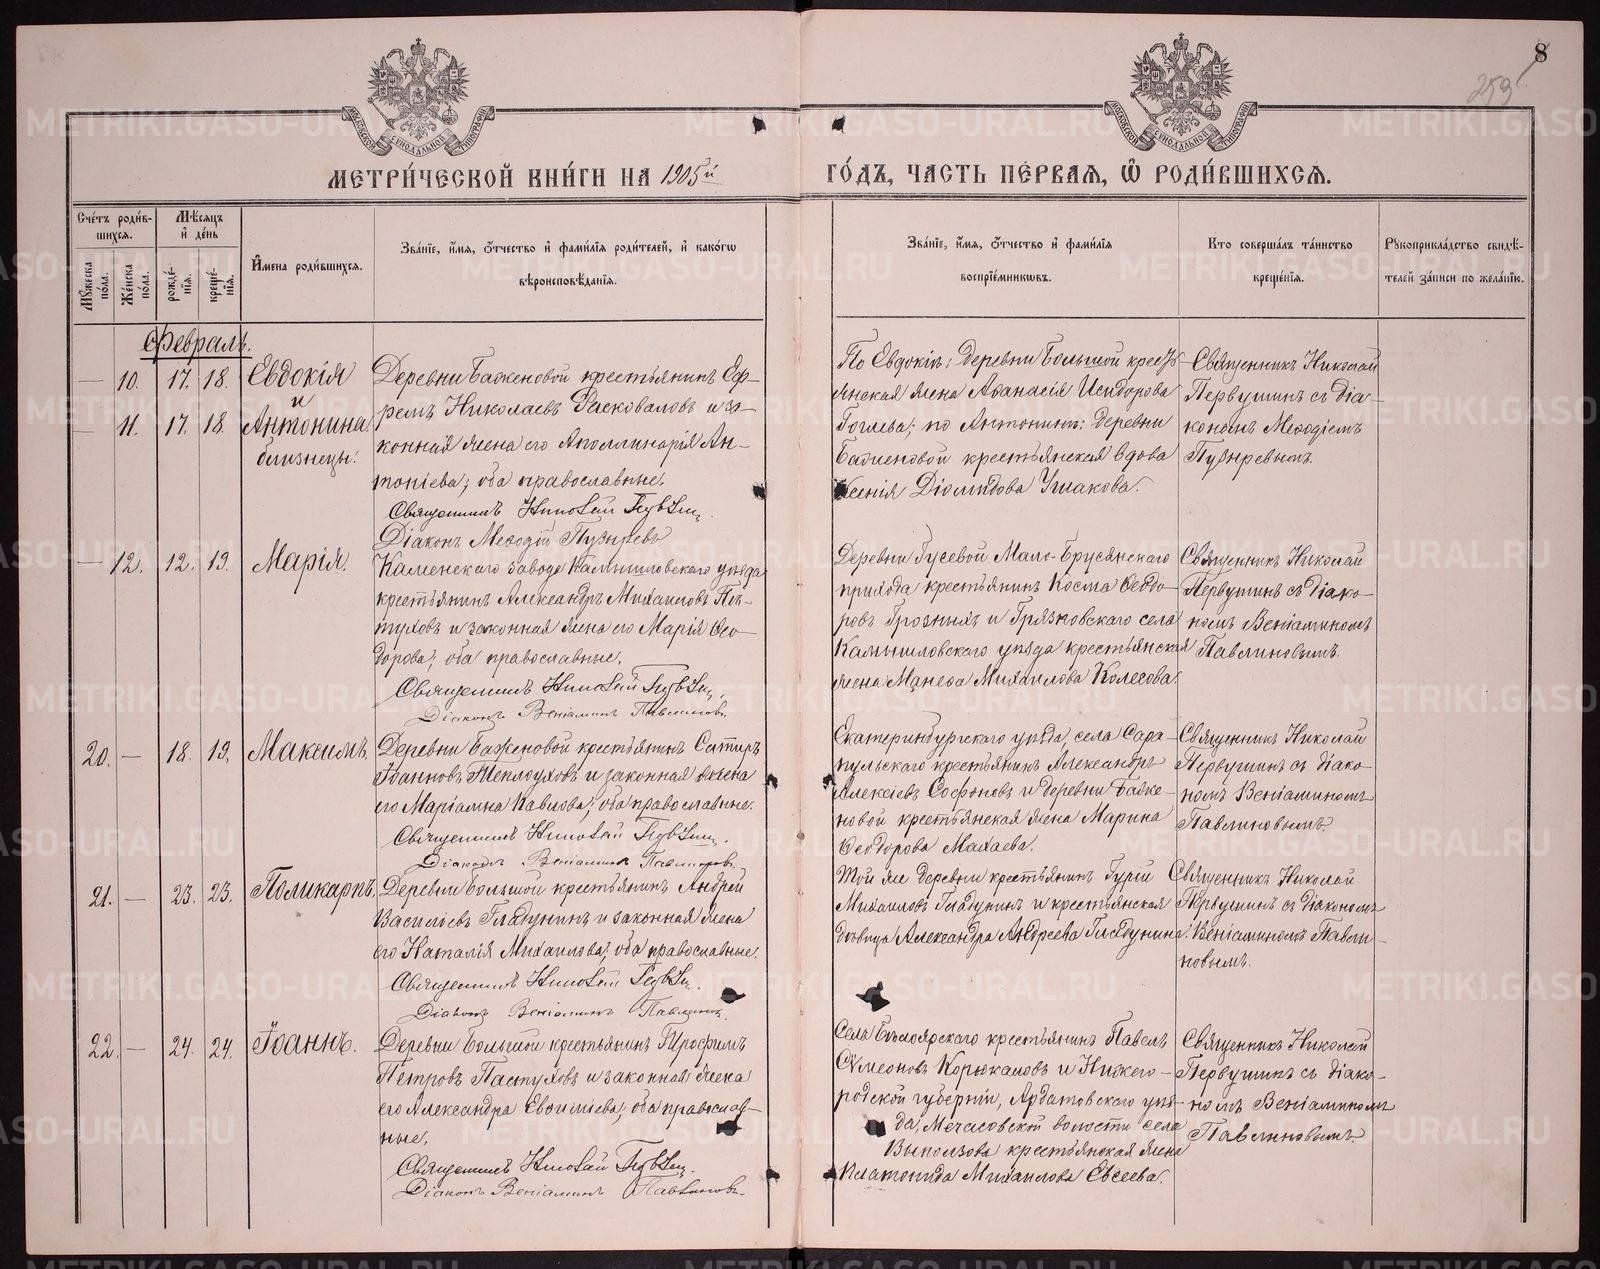 8
259
МЕТРИ́ЧЕСКОЙ КНИ́ГИ НА 1905й
ГО́ДЪ, ЧАСТЬ ПЕ́РВАЯ, Ѽ РОДИ́ВШИХСЯ.
Сче́тъ роди́в-
шихся.
Мѣ́сяцъ
и҆ де́нь
И҆мена роди́вшихся.
Зва́нїе, и҆́мя, ѻ҆́тчество и҆ фами́лїя роди́телей, и҆ како́гѡ
вѣроисповѣ́данїя.
Мꙋ́жеска
по́ла.
Же́нска
по́ла.
рожде́-
нїя.
креще́-
нїя.
Зва́нїе, и҆́мя, ѻ҆́тчество и҆ фами́лїя
воспрїе́мникѡвъ.
Кто совершалъ та́инство
креще́нїя.
Рꙋкоприкла́дство свидѣ́-
телей за́писи по жела́нїю.
Февраль.
— 10. 17. 18. Евдокія
и
— 11. 17. 18. Антонина
близнецы.
Деревни Баженовой крестьянинъ Еф-
ремъ Николаевъ Расковаловъ и за-
конная жена его Аполлинарія Ан-
тоніева; оба православные.
Священникъ Николай
Діаконъ Меѳодій Пузыревъ
По Евдокіи: деревни Большой кресть-
янская жена Аѳанасія Исидорова
по Антонинѣ: деревни
Баженовой крестьянская вдова
Ксенія Діомидова Ушакова.
Священникъ Николай
Первушинъ съ діа-
кономъ Меѳодіемъ
Пузыревымъ.
— 12. 12. 19. Марія.
Каменскаго завода Камышловскаго уѣзда
крестьянинъ Александръ Михаиловъ Пѣ-
туховъ и законная жена его Марія Ѳео-
дорова; оба православные.
Священникъ Николай
Діаконъ Веніаминъ Павлиновъ.
Деревни Гусевой Мало-Брусянскаго
прихода крестьянинъ Косма Ѳеодо-
ровъ Грозныхъ и Грязновскаго села
Камышловскаго уѣзда крестьянская
жена Михаилова Колегова.
Священникъ Николай
Первушинъ съ діако-
номъ Веніаминомъ
Павлиновымъ.
20. — 18. 19. Максимъ.
Деревни Баженовой крестьянинъ Сатиръ
Іоанновъ Теплоуховъ и законная жена
его Маріамна Павлова; оба православные.
Священникъ Николай
Діаконъ Веніаминъ Павлиновъ.
Екатеринбургскаго уѣзда, села Сара-
пульскаго крестьянинъ Александръ
Алексіевъ Софоновъ и деревни Баже-
новой крестьянская жена Марина
Ѳеодорова Махаева.
Священникъ Николай
Первушинъ съ діако-
номъ Веніаминомъ
Павлиновымъ.
21. — 23. 23. Поликарпъ.
Деревни Большой крестьянинъ Андрей
Василіевъ Гладунинъ и законная жена
его Наталія Михаилова; оба православные.
Священникъ Николай
Діаконъ Веніаминъ Павлиновъ.
Той же деревни крестьянинъ Гурій
Михаиловъ Гладунинъ и крестьянская
дѣвица Александра Андреева Гладунина.
Священникъ Николай
Первушинъ съ діакономъ
Веніаминомъ Павли-
новымъ.
22. — 24. 24. Іоаннъ.
Деревни Большой крестьянинъ Трофимъ
Петровъ Пастуховъ и законная жена
его Александра Евѳиміева; оба православ-
ные.
Священникъ Николай
Діаконъ Веніаминъ Павлиновъ.
Села Бѣлоярскаго крестьянинъ Павелъ
Сѵмеоновъ Корюкаловъ и Нижего-
родской губерніи, Ардатовскаго уѣз-
да, Мечасовской волости села
Выползова крестьянская жена
Платонида Михаилова Евсеева.
Священникъ Николай
Первушинъ съ діако-
номъ Веніаминомъ
Павлиновымъ.
METRIKI.GASO-URAL.RU